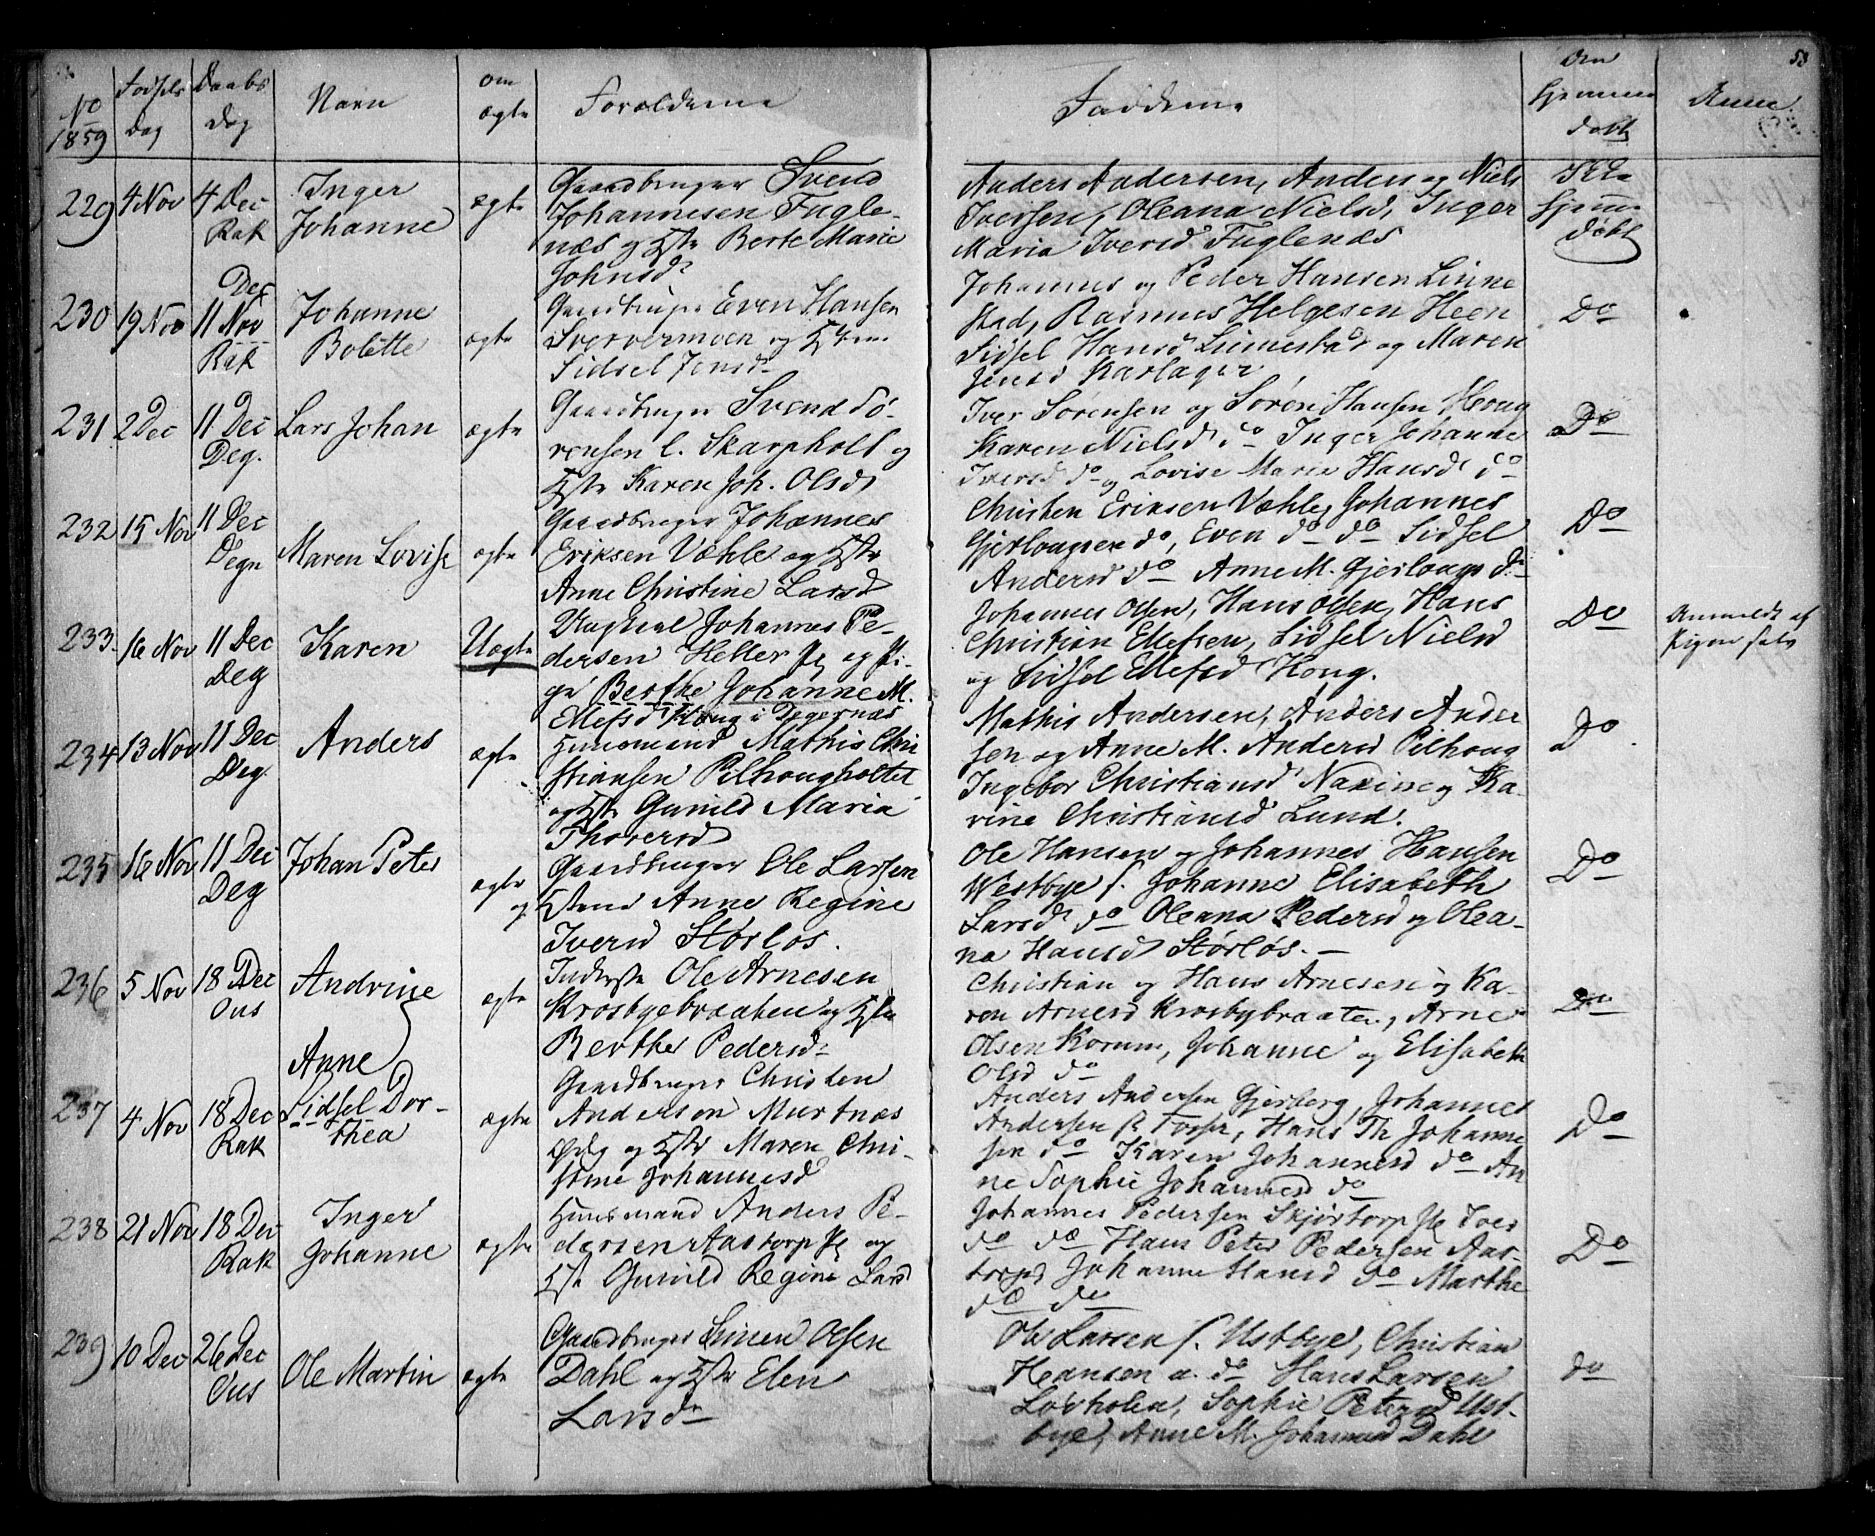 No
1859
Fødsels
dag
Daabs
Dag
Navn
om
ægte
Forældrene
Faddene
Om
hjemme
døbt
Anm
58
229
4 Nov
4 Dec
Rak
Inger
Johanne
ægte
Gaardbruger Svend
Johannesen Fugle-
næs og Hstr Berte Marie
Johnsd
Anders Andersen, Anders og Niels
Iversen, Oleana Nielsd, Inger
Maria Iversd Fuglenæs
Ikke
hjemme
døbt
230
19 Nov
Dec
11 Nov
Rak
Johanne
Bolette
ægte
Gaardbruger Even Hansen
og
Sidsel Jensd
Johannes og Peder Hansen Linne
stad, Rasmus Helgesen Heen
Sidsel Hansd Linnestad og Maren
Jensd Karlager
Do
231
2 Dec
11 Dec
Deg.
Lars Johan
ægte
Gaardbruger Svend Sø-
rensen l. Skarpholt og
Hstr Karen Joh. Olsd
Iver Sørensen og Søren Hansen Houg
Karen Nielsd do Inger Johanne
Iversd do og Lovise Marie Hansd do
Do
232
15 Nov
11 Dec
Degn
Maren Lovise
ægte
Gaardbruger Johannes
Eriksen Væhle og Hstr
Anne Christine Larsd
Christen Eriksen Væhle, Johannes
Gjerlougsen do, Even do do Sidsel
Andersd do Anne M. Gjerlougs do
Do
233
16 Nov
11 Dec
Deg
Karen
Uægte
Ungkal Johannes Pe-
dersen Heller og Pi-
ge Berthe Johanne M.
Ellefsd Houg i Degernæs
Johannes Olsen, Hans Olsen, Hans
Christian Ellefsen, Sidsel Nielsd
og Sidsel Ellefsd Houg.
Do
Anmeldt af
Pigen selv
234
13 Nov
11 Dec
Deg.
Anders
ægte
Huusmand Mathis Chri
stiansen Pilhougholtet
og Hstr Gunild Maria
Thoresd
Mathis Andersen, Anders Ander
sen og Anne M. Andersd Pilhoug
Ingebor Christiansd Naxine og Ka-
rine Christiansd Lund.
Do
235
16 Nov
11 Dec
Deg
Johan Peter
ægte
Gaardbruger Ole Larsen
og Anne Regine
Iversd Størløs.
Ole Hansen og Johannes Hansen
Westbye s. Johanne Elisabeth
Larsd do Oleana Pedersd og Olea-
na Hansd Størløs.
Do
236
5 Nov
18 Dec
Ous
Andrine
ægte
Inderste Ole Arnesen
Krosbybraaten og Hstr
Berthe Pedersd
Christian og Hans Arnesen og Ka-
ren Arnesd Krosbybraaten, Arne
Olsen Korum, Johanne og Elisabeth
Olsd do
Do
237
4 Nov
18 Dec
Rak
Anne
Sidsel Dor-
thea
ægte
Gaardbruger Christen
Andersen Murtnæs
og Hstr Maren Chri-
stine Johannesd
Anders Andersen Gjerberg, Johannes
Andersen Fosser, Hans Th Johanne
sen do Karen Johannesd do An
ne Sophie Johannesd do
Do
238
21 Nov
18 Dec
Rak
Inger
Johanne
ægte
Huusmand Anders Pe-
dersen Aastorp og
Hstr Gunild Regine Larsd
Johannes Pedersen Skjøstorp Iver
do do Hans Peter Pedersen Aas-
torp, Johanne Hansd do Marthe
do do
Do
239
10 Dec
26 Dec
Ous
Ole Martin
ægte
Gaardbruger Simen Olsen
Dahl og Hstr Elen
Larsd
Ole Larsen s. Ustbye, Christian
Hansen a. do Hans Larsen
Løvholen, Sophie Petersd Ust-
bye, Anne M. Johannesd Dahl
do